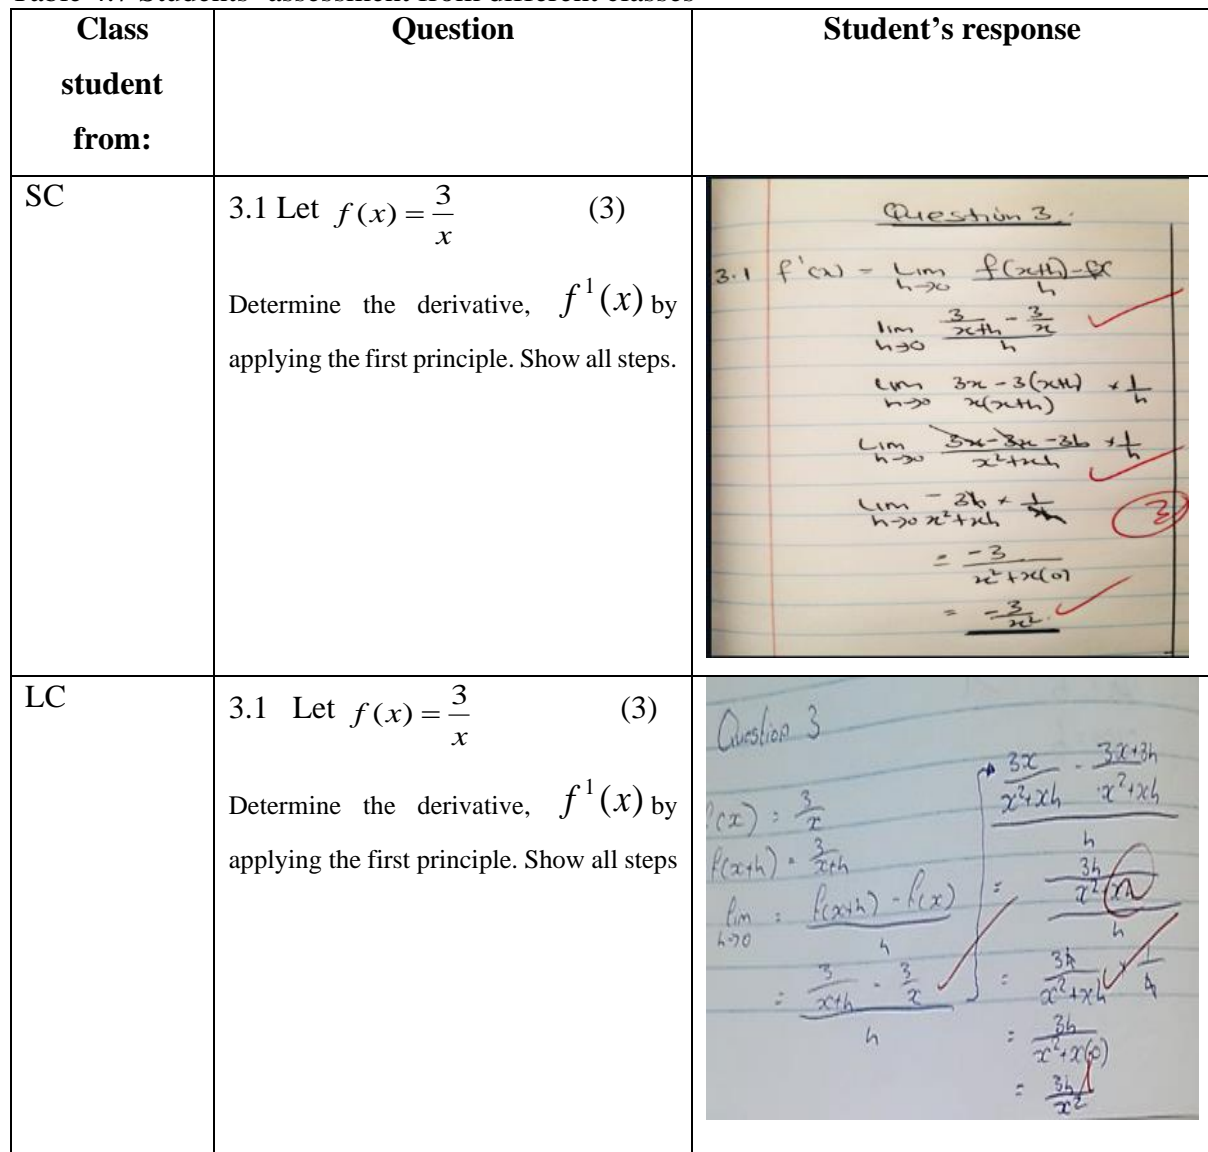 Table 4.7 Students' assessment from different classes
Class student from:
Question
Student's response
SC
3.1 Let f(x) = 3/x (3)
Determine the derivative, f¹(x) by
applying the first principle. Show all steps.
Question 3.
3.1 f'(x) = Lim h→0 f(x+h)-fx / h
lim h→0 (3/(x+h) - 3/x) / h
Lim h→0 3x - 3(x+h) / x(x+h) × 1/h
Lim h→0 3x - 3x - 3h / x²+xh × 1/h
Lim h→0 -3h / x²+xh × 1/h
3
= -3 / x²+x(0)
= -3/x²
LC
3.1 Let f(x) = 3/x (3)
Determine the derivative, f¹(x) by
applying the first principle. Show all steps
Question 3
(x) = 3/x
f(x+h) = 3/(x+h)
lim h→0 = f(x+h) - f(x) / h
= (3/(x+h) - 3/x) / h
(3x/(x²+xh) - 3x+3h/(x²+xh)) / h
= (3h / x² xh) / h
= 3h / x²+xh × 1/h
= 3h / x²+x(0)
= 3h / x²